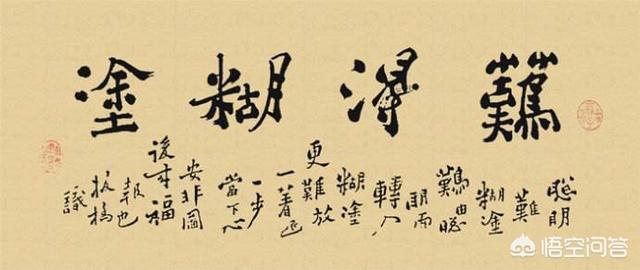 難得糊塗
聰明
難
糊塗
難由聰
明而
轉入
糊塗
更難放
一著退
一步
當下心
安非圖
後来福
報也
板橋
識
悟空问答